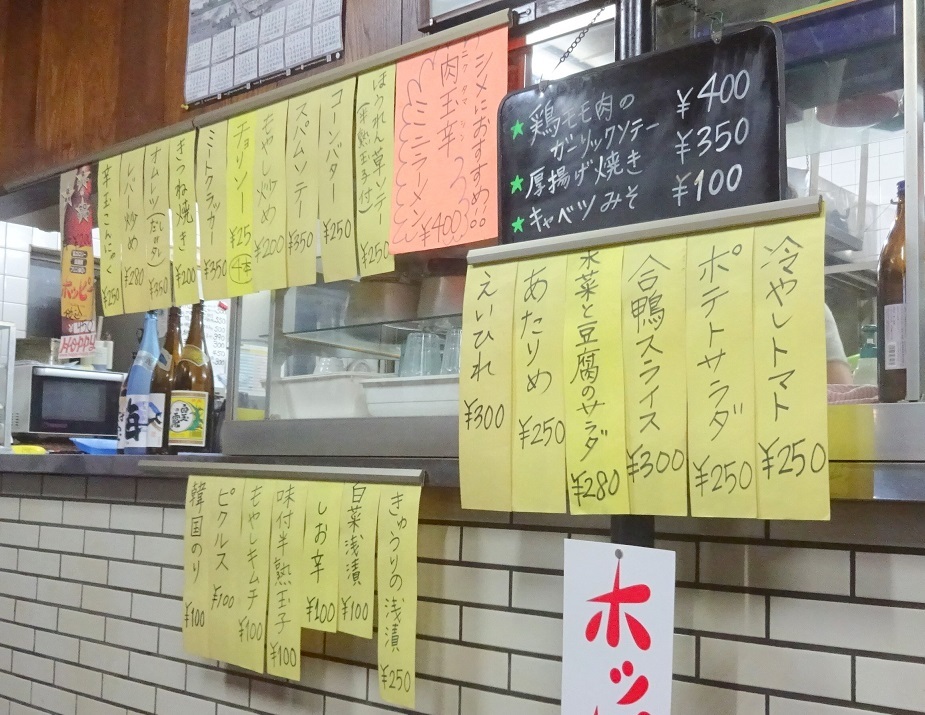 シメにおすすめ!!
肉玉辛
ミニラーメン
¥400
ほうれん草ソテー
(半熟玉子付)
¥250
コーンバター
¥250
スパムソテー
¥350
もやし炒め
¥200
チョリソー
¥25
ミートクラッカー
¥350
きつね焼き
¥200
オムレツ
¥350
レバー炒め
¥280
辛玉こんにゃく
¥250
ホッピー
HOPPY
★鶏モモ肉の
ガーリックソテー
¥400
★厚揚げ焼き
¥350
★キャベツみそ
¥100
冷やしトマト
¥250
ポテトサラダ
¥250
合鴨スライス
¥300
水菜と豆腐のサラダ
¥280
あたりめ
¥250
えいひれ
¥300
きゅうりの浅漬
¥250
白菜浅漬
¥100
しお辛
¥100
味付半熟玉子
¥100
もやしキムチ
¥100
ピクルス
¥100
韓国のり
¥100
ホッピ